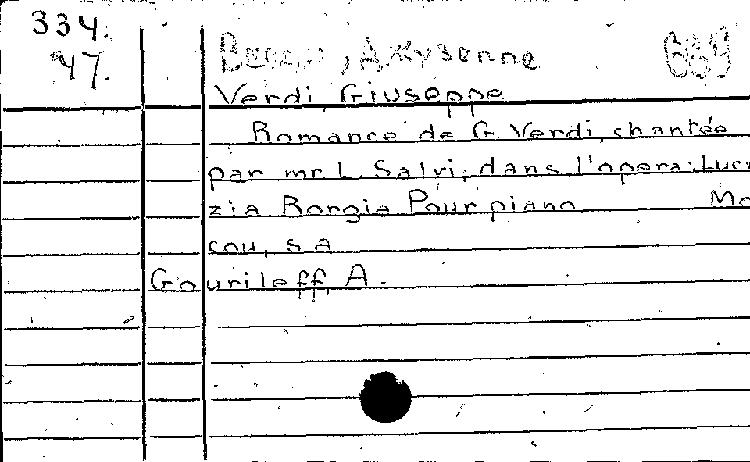 334.
47.
689
Verdi, Giuseppe
Romance de G. Verdi, chantée
par mr L. Salvi, dans l'opera: Lucr
zia Borgia Pour piano Mo
cou, s a
Gourileff, A.